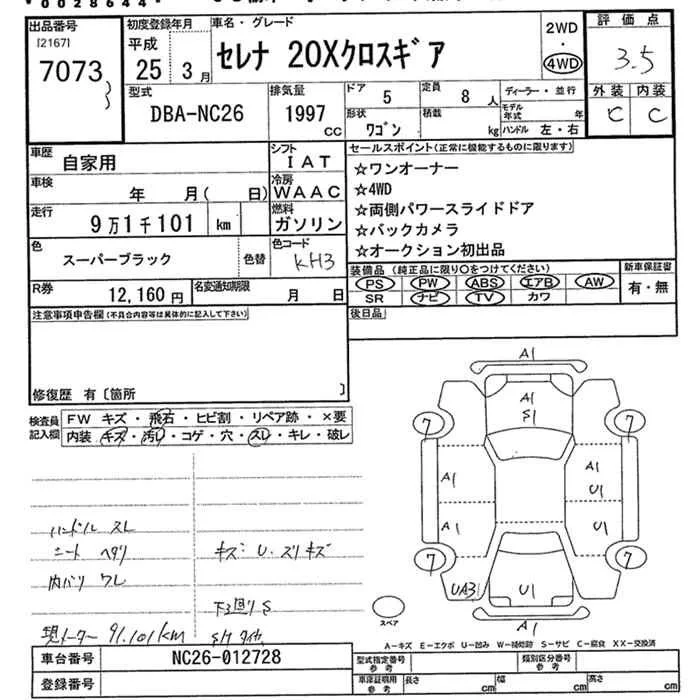 *0028644*
出品番号 初度登録年月 車名・グレード 評価点
[2167] 平成 2WD
7073 25年3月 セレナ 20Xクロスギア ・ 3.5
4WD
型式 排気量 ドア 5 定員 8人 ディーラー・並行 外装 内装
DBA-NC26 1997cc 形状 ワゴン 積載 kg モデル年式 年 C C
ハンドル 左・右
車歴 自家用 シフト IAT セールスポイント(正常に機能するものに限ります)
車検 年 月( 日) 冷房 WAAC ☆ワンオーナー
☆4WD
走行 9万1千101 km 燃料 ガソリン ☆両側パワースライドドア
☆バックカメラ
色 スーパーブラック 色替 色コード KH3 ☆オークション初出品
装備品(純正品に限り○をつけてください) 新車保証書
R券 12,160円 名変通知期限 月 日 PS PW ABS エアB AW 有・無
SR ナビ TV カワ
注意事項申告欄(不具合内容等は具体的に記入して下さい) 後日品
修復歴 有〔箇所 〕
検査員記入欄 FW キズ・飛石・ヒビ割・リペア跡・×要
内装 キズ・汚レ・コゲ・穴・スレ・キレ・破レ
A1
A1
S1
7 7
A1 A1
U1
A1 U1
7 7
UA3 U1
A1
ハンドル スレ
シート ヘタリ キズ: U. スリキズ
内バリ ワレ
下廻り S
現メーター 91,101km S/T タイヤ
スペア
A-キズ E-エクボ U-凹み W-補修跡 S-サビ C-腐食 XX-交換済
車台番号 NC26-012728 型式指定番号 参考 類別区分番号 参考
登録番号 車庫証明用 参考 長さ cm 幅 cm 高さ cm